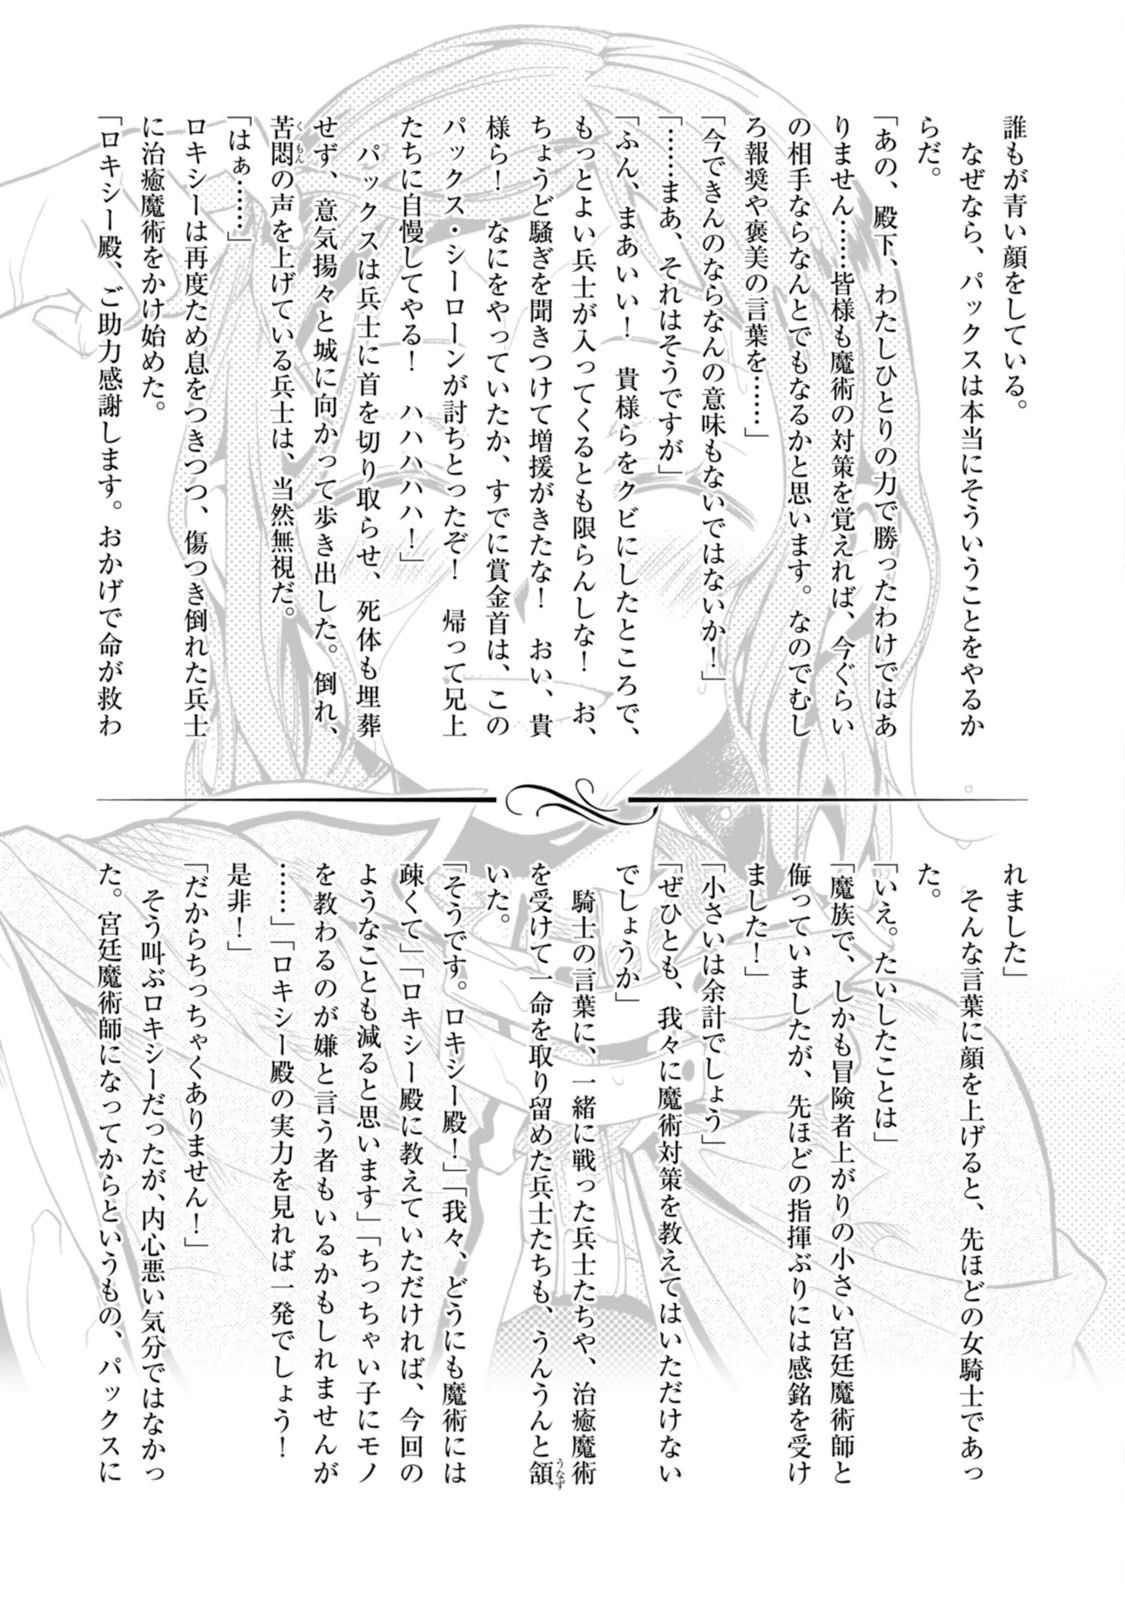 誰もが青い顔をしている。
　なぜなら、パックスは本当にそういうことをやるか
らだ。
「あの、殿下、わたしひとりの力で勝ったわけではあ
りません……皆様も魔術の対策を覚えれば、今ぐらい
の相手ならなんとでもなるかと思います。なのでむし
ろ報奨や褒美の言葉を……」
「今できんのならなんの意味もないではないか！」
「……まあ、それはそうですが」
「ふん、まあいい！　貴様らをクビにしたところで、
もっとよい兵士が入ってくるとも限らんしな！　お、
ちょうど騒ぎを聞きつけて増援がきたな！　おい、貴
様ら！　なにをやっていたか、すでに賞金首は、この
パックス・シーローンが討ちとったぞ！　帰って兄上
たちに自慢してやる！　ハハハハハ！」
　パックスは兵士に首を切り取らせ、死体も埋葬
せず、意気揚々と城に向かって歩き出した。倒れ、
苦悶の声を上げている兵士は、当然無視だ。
「はぁ……」
ロキシーは再度ため息をつきつつ、傷つき倒れた兵士
に治癒魔術をかけ始めた。
「ロキシー殿、ご助力感謝します。おかげで命が救わ
れました」
　そんな言葉に顔を上げると、先ほどの女騎士であっ
た。
「いえ。たいしたことは」
「魔族で、しかも冒険者上がりの小さい宮廷魔術師と
侮っていましたが、先ほどの指揮ぶりには感銘を受け
ました！」
「小さいは余計でしょう」
「ぜひとも、我々に魔術対策を教えてはいただけない
でしょうか」
　騎士の言葉に、一緒に戦った兵士たちや、治癒魔術
を受けて一命を取り留めた兵士たちも、うんうんと頷
いた。
「そうです。ロキシー殿！」「我々、どうにも魔術には
疎くて」「ロキシー殿に教えていただければ、今回の
ようなことも減ると思います」「ちっちゃい子にモノ
を教わるのが嫌と言う者もいるかもしれませんが
……」「ロキシー殿の実力を見れば一発でしょう！
是非！」
「だからちっちゃくありません！」
　そう叫ぶロキシーだったが、内心悪い気分ではなかっ
た。宮廷魔術師になってからというもの、パックスに